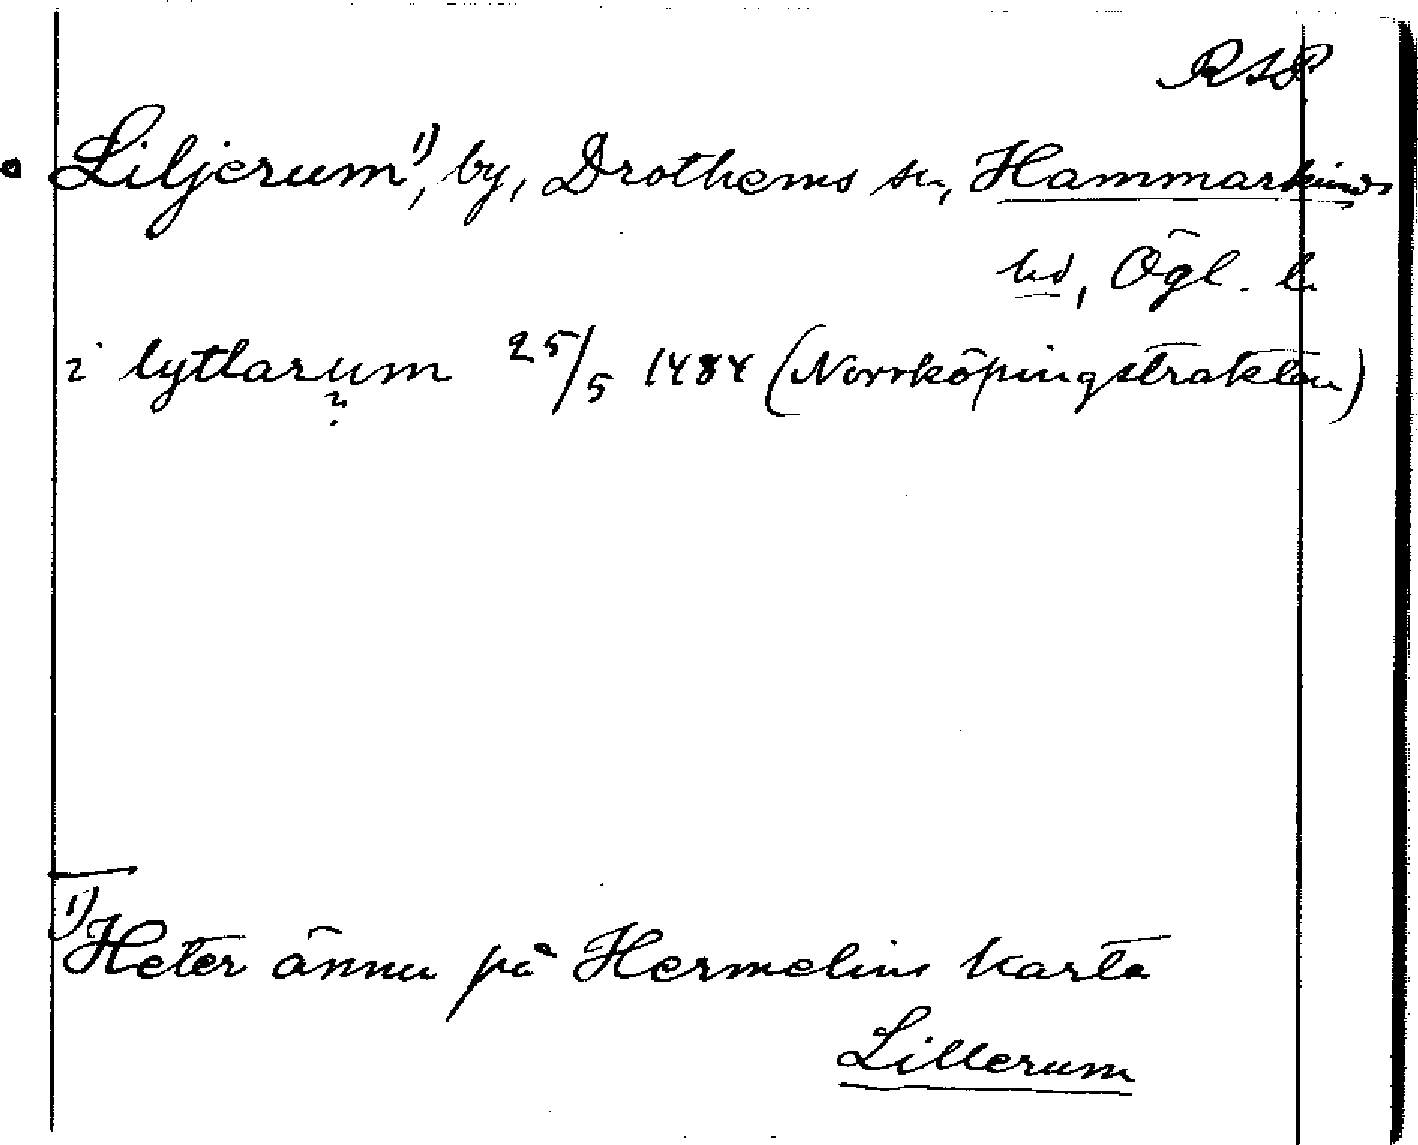 RAP.
Liljerum¹⁾, by, Drothems sn, Hammarkinds
hd, Ögl. l.
i lytlarum 25/5 1484 (Norrköpingstrakten)
?
1) Heter ännu på Hermelins karta
Lillerum